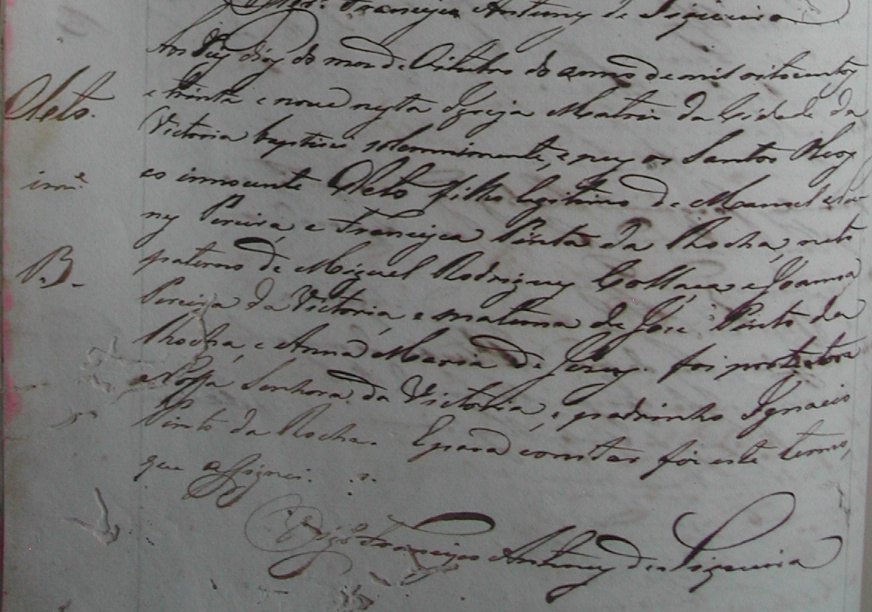 Vigr.º Francisco Antunes de Siqueira
Aos dez dias do mes de Oitubro do anno de mil oitocentos
Cleto.
e trinta e nove nesta Igreja Matriz da Cidade da
Victoria baptisei solemnimente, e puz os Santos Oleos
inn.e
ao innocente Cleto filho legitimo de Manoel
Pereira, e Francisca Pinta da Rocha, neto
B.
paterno de Miguel Rodrigues Collaço e Joanna
Pereira da Victoria, e materno de José Pinto da
Rocha, e Anna Maria de Jesus. foi protectora
a Nossa Senhora da Victoria, e padrinho Ignacio
Pinto da Rocha. E para constar foi este termo,
que assignei.
Vigr.º Francisco Antunes de Siqueira